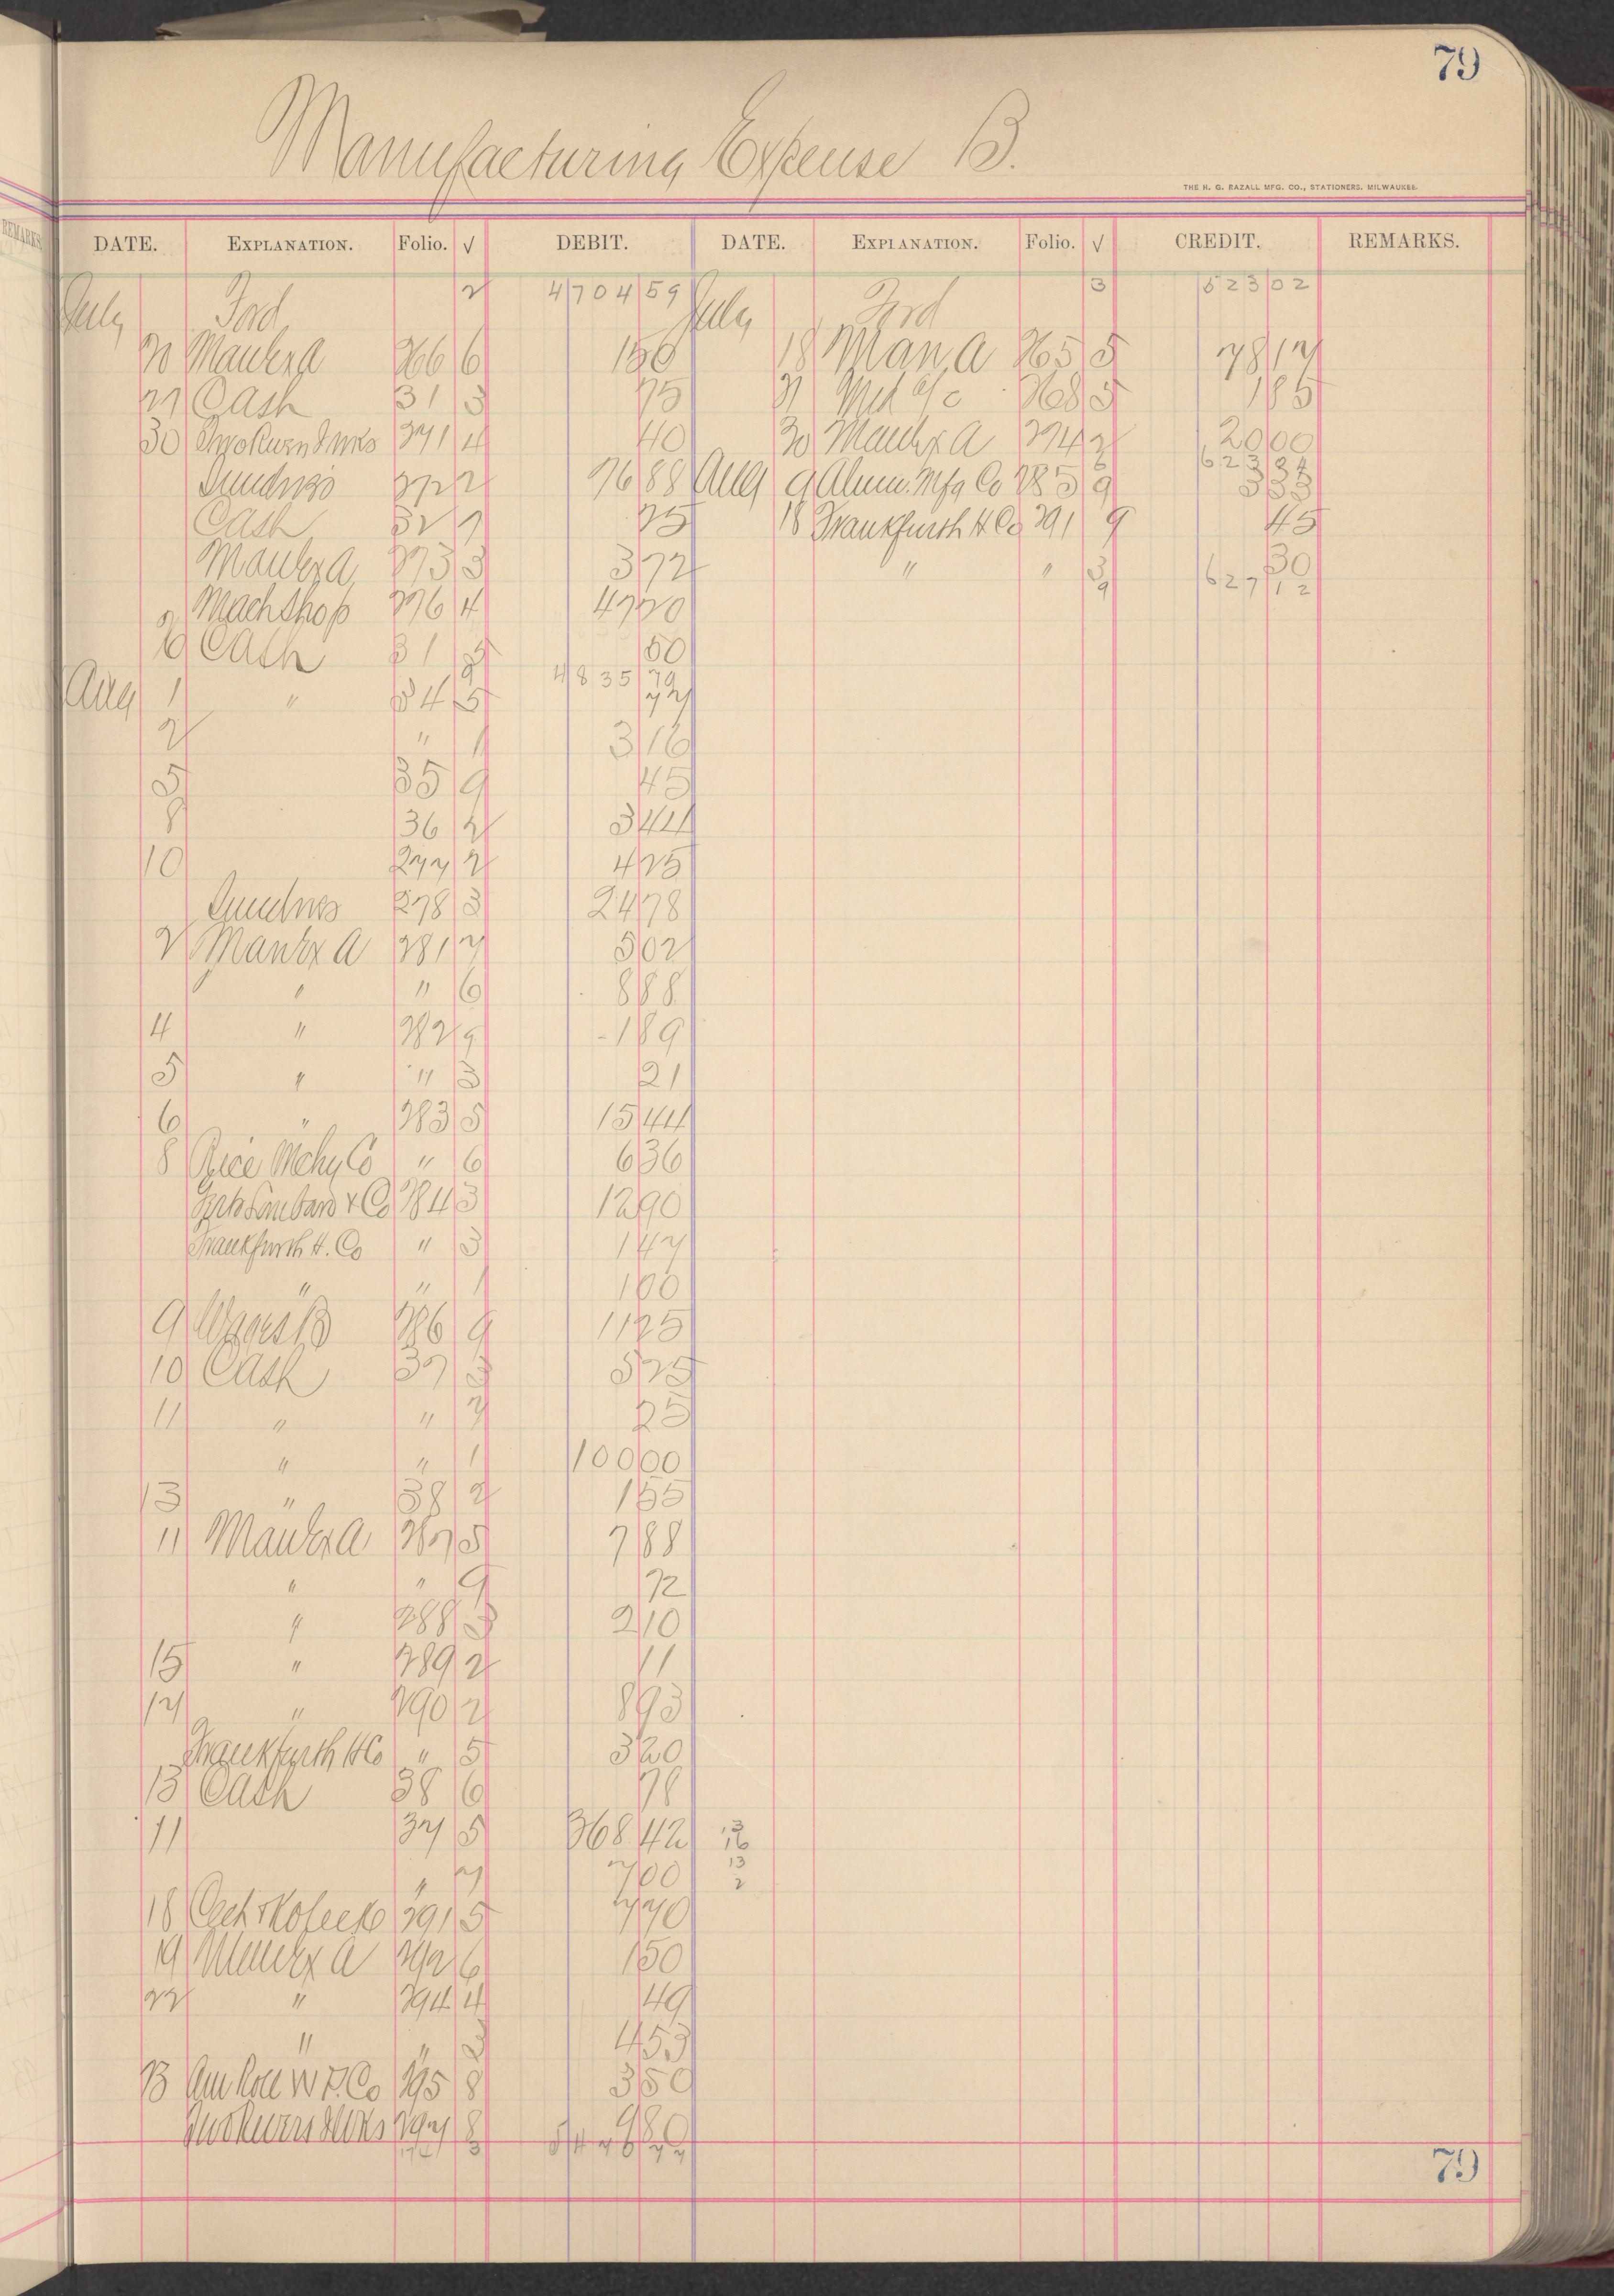 79
Manufacturing Expense B.
THE H. G. RAZALL MFG. CO., STATIONERS, MILWAUKEE.
REMARKS
DATE. EXPLANATION. Folio. √ DEBIT. DATE. EXPLANATION. Folio. √ CREDIT. REMARKS.
July Ford 2 4704 59 July Ford 3 523 02
20 Man Ex A 266 6 1 50 18 Man A 265 5 78 17
21 Cash 31 3 75 21 268 5 1 85
30 271 4 40 30 Man Ex A 274 2 20 00
Sundries 272 76 88 Aug 9 Alum. Mfg Co 285 9 3 33
623 34
Cash 32 7 25 18 Frankfurth H Co 291 9 45
Man Ex A 273 3 3 72 " " 3 30
627 12
Mach Shop 276 4 47 20
Cash 31 50
4835 79
Aug 1 " 34 5
2 " 1 3 16
5 35 9 45
8 36 2 3 44
10 277 2 4 25
Sundries 278 3 24 78
2 Man Ex A 281 7 5 02
" " 6 8 88
4 " 282 9 1 89
5 " " 3 21
6 " 283 5 15 44
8 Rice Mchy Co " 6 6 36
284 3 12 90
Frankfurth H. Co " 3 1 47
" " 1 1 00
9 Wages B 286 9 11 25
10 Cash 37 3 5 25
11 " " 7 25
" " 1 100 00
13 " 38 2 1 55
11 Man Ex A 287 5 7 88
" " 9 72
" 288 3 2 10
15 " 289 2 11
17 " 290 2 8 93
Frankfurth H Co " 5 3 20
13 Cash 38 6 78
11 37 5 368 42
" 7 7 00
18 291 5 7 70
19 Man Ex A 292 6 1 50
22 " 294 4 49
" " 3 4 53
23 295 8 3 50
297 8 9 80
79